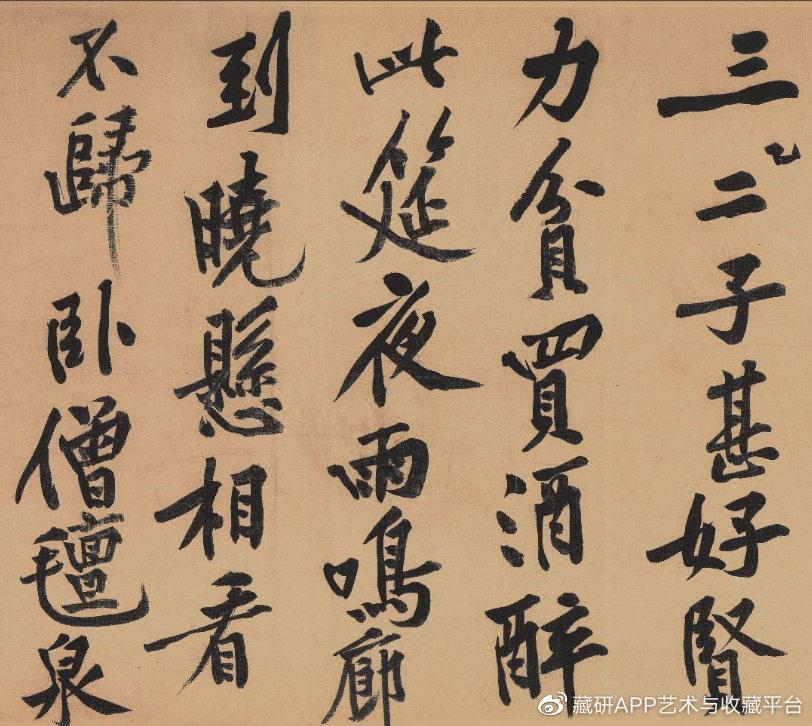 三二子甚好賢
力貧買酒醉
此筵夜雨鳴廊
到曉懸相看
不歸卧僧氈泉
藏研APP艺术与收藏平台